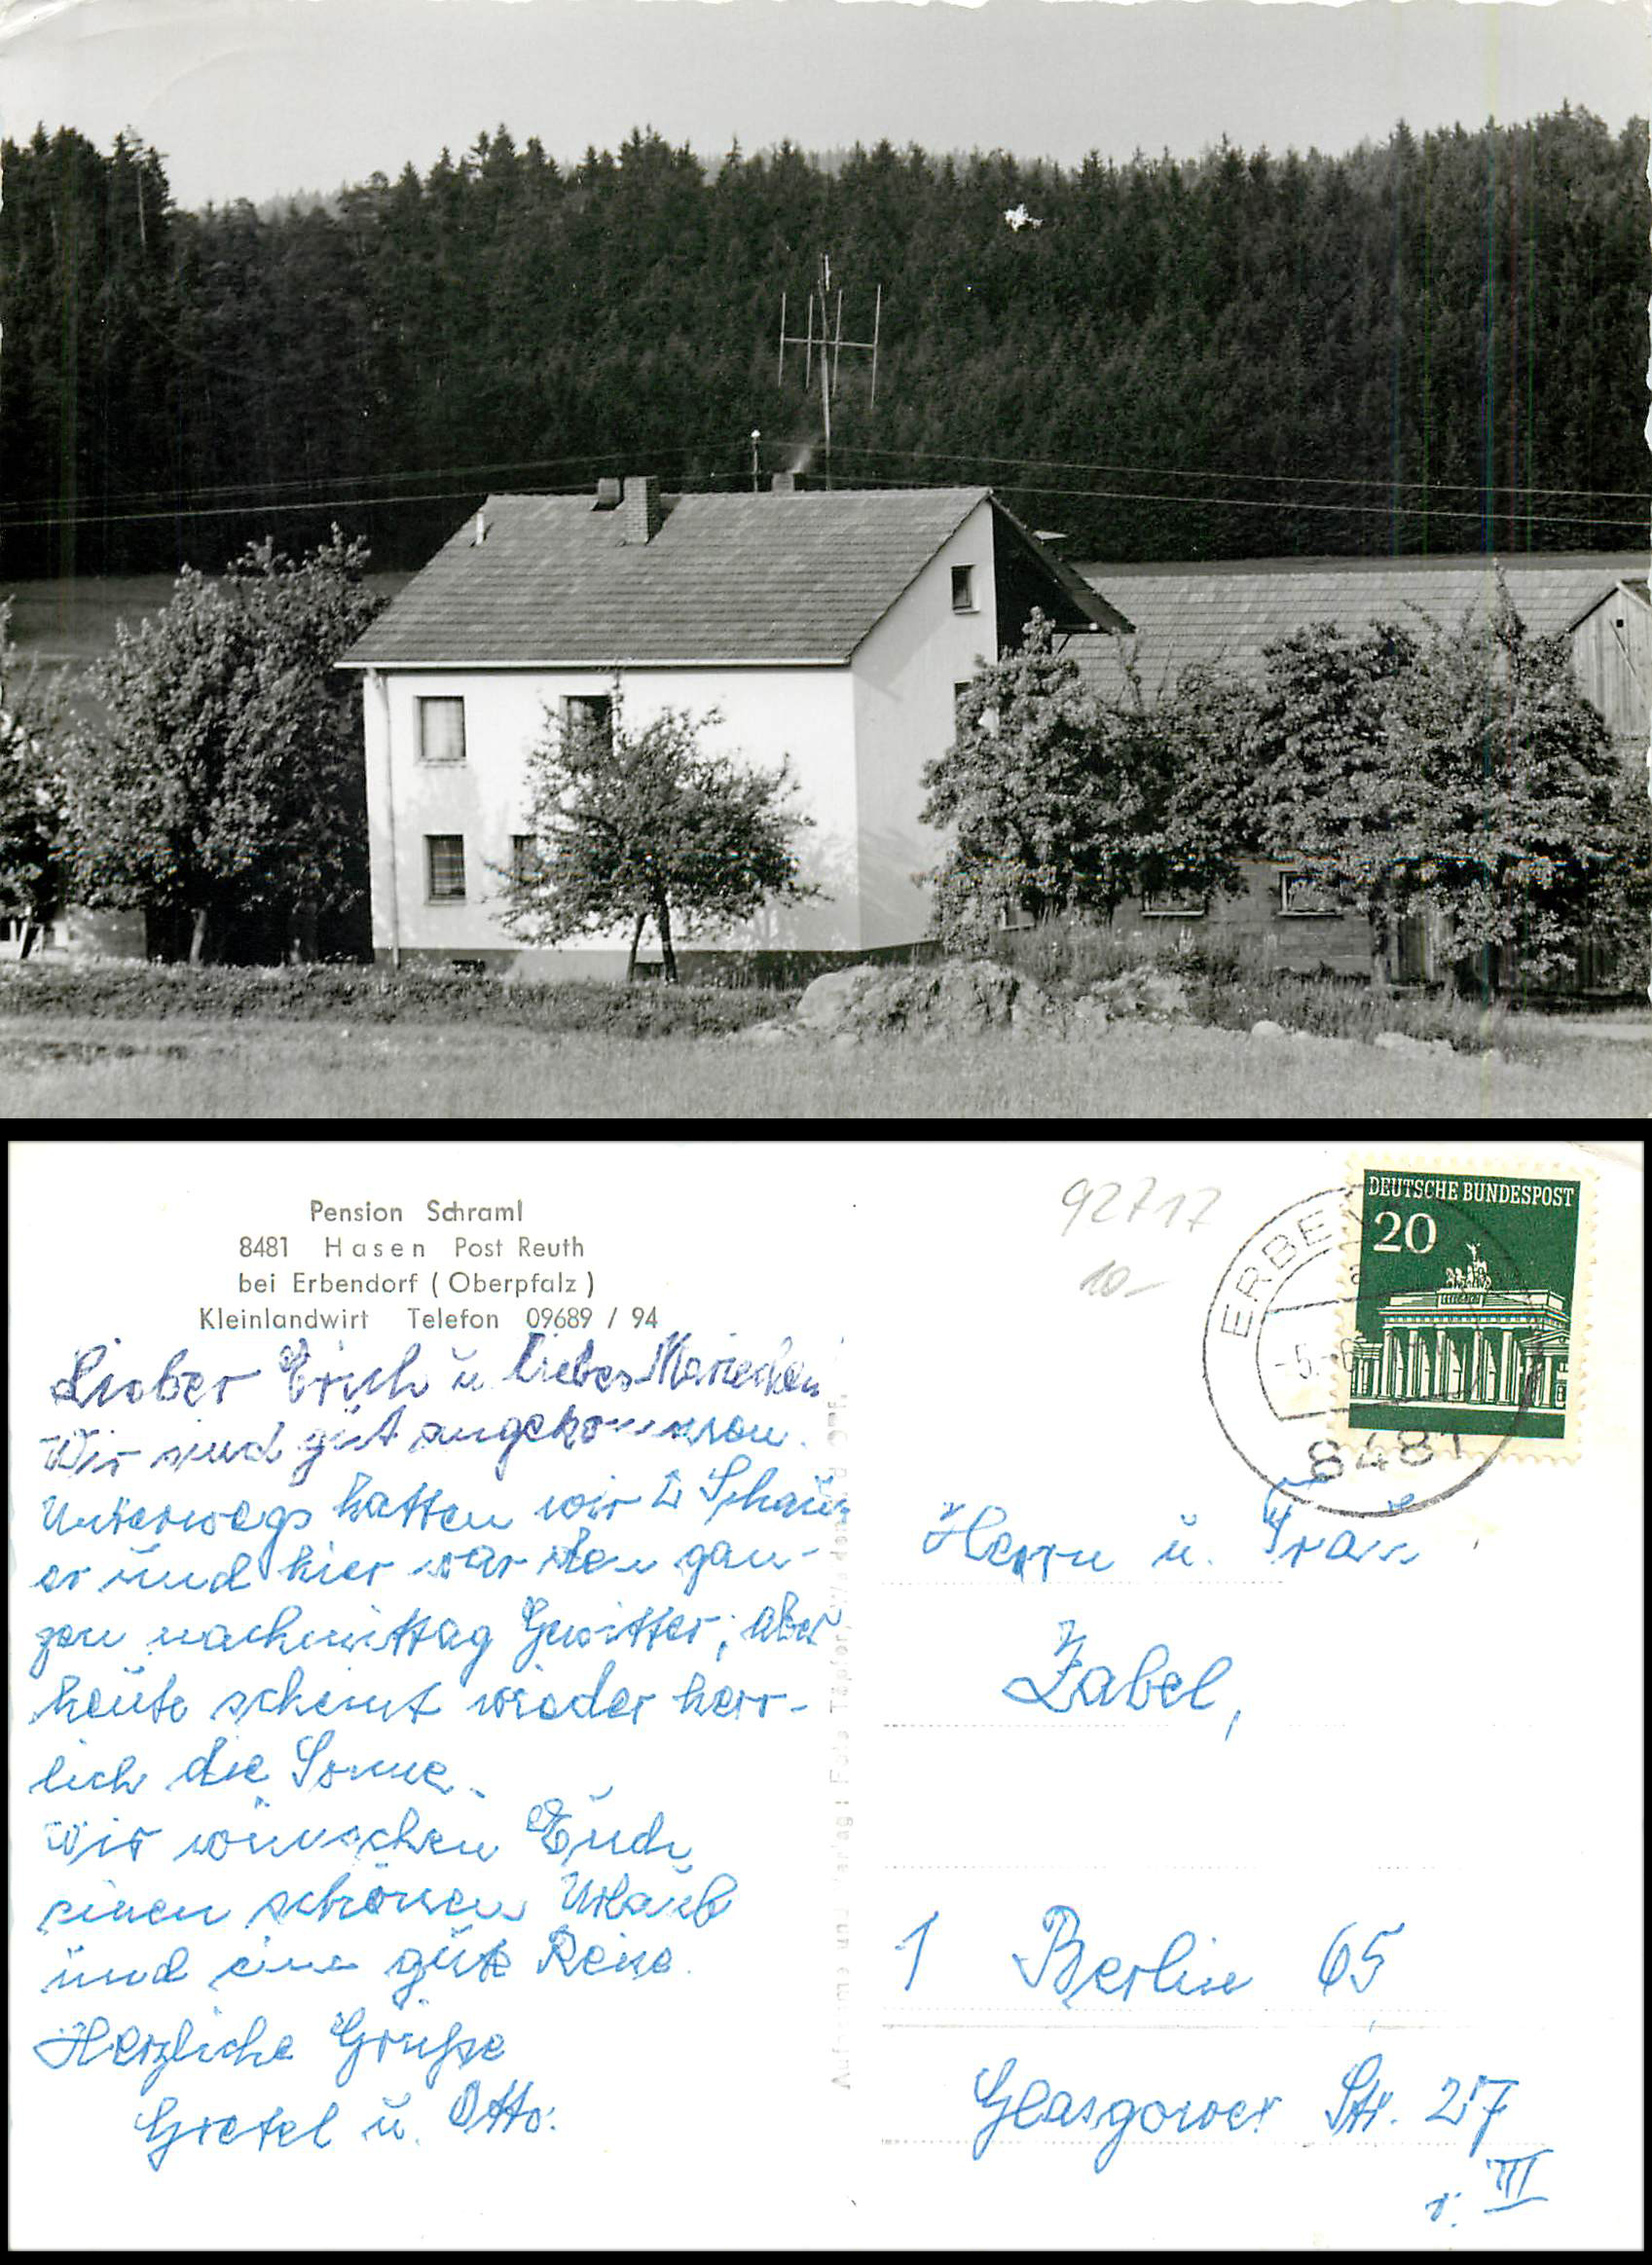 Pension Schraml
8481 Hasen Post Reuth
bei Erbendorf ( Oberpfalz )
Kleinlandwirt Telefon 09689 / 94
Lieber Erich u. liebes Mariechen
Wir sind gut angekommen.
Unterwegs hatten wir 2 Schau-
er und hier war den gan-
zen nachmittag Gewitter, aber
heute scheint wieder herr-
lich die Sonne.
Wir wünschen Euch
einen schönen Urlaub
und eine gute Reise.
Herzliche Grüße
Gretel u. Otto.
92717
10-
DEUTSCHE BUNDESPOST
20
8481
Herrn u. Frau
Zabel,
1 Berlin 65
Glasgower Str. 27
r. III